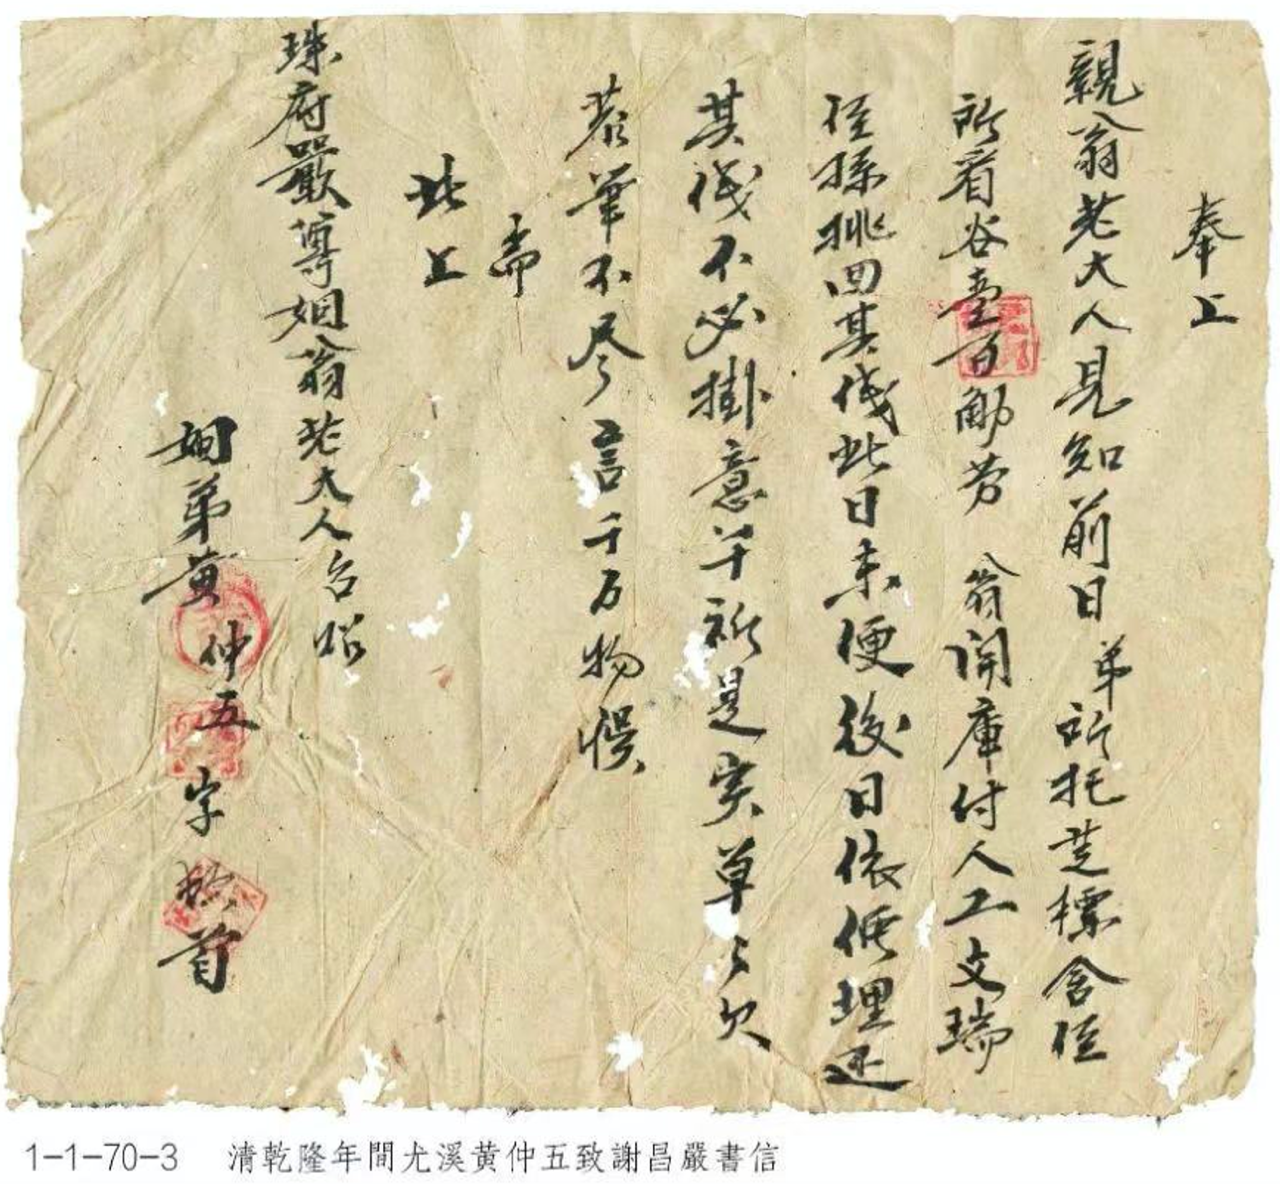 奉上
親翁老大人見知前日弟所托芝標含侄
所看谷壹百觔劳 翁開庫付人工文瑞
侄孫挑回其伐此日未便後日依俩埋还
其伐不必掛意千祈是实草々欠
恭筆不尽言千万物悞
耑
此上
珠府嚴尊姻翁老大人台炤
姻弟黄仲五字 首
1-1-70-3 清乾隆年間尤溪黄仲五致謝昌嚴書信